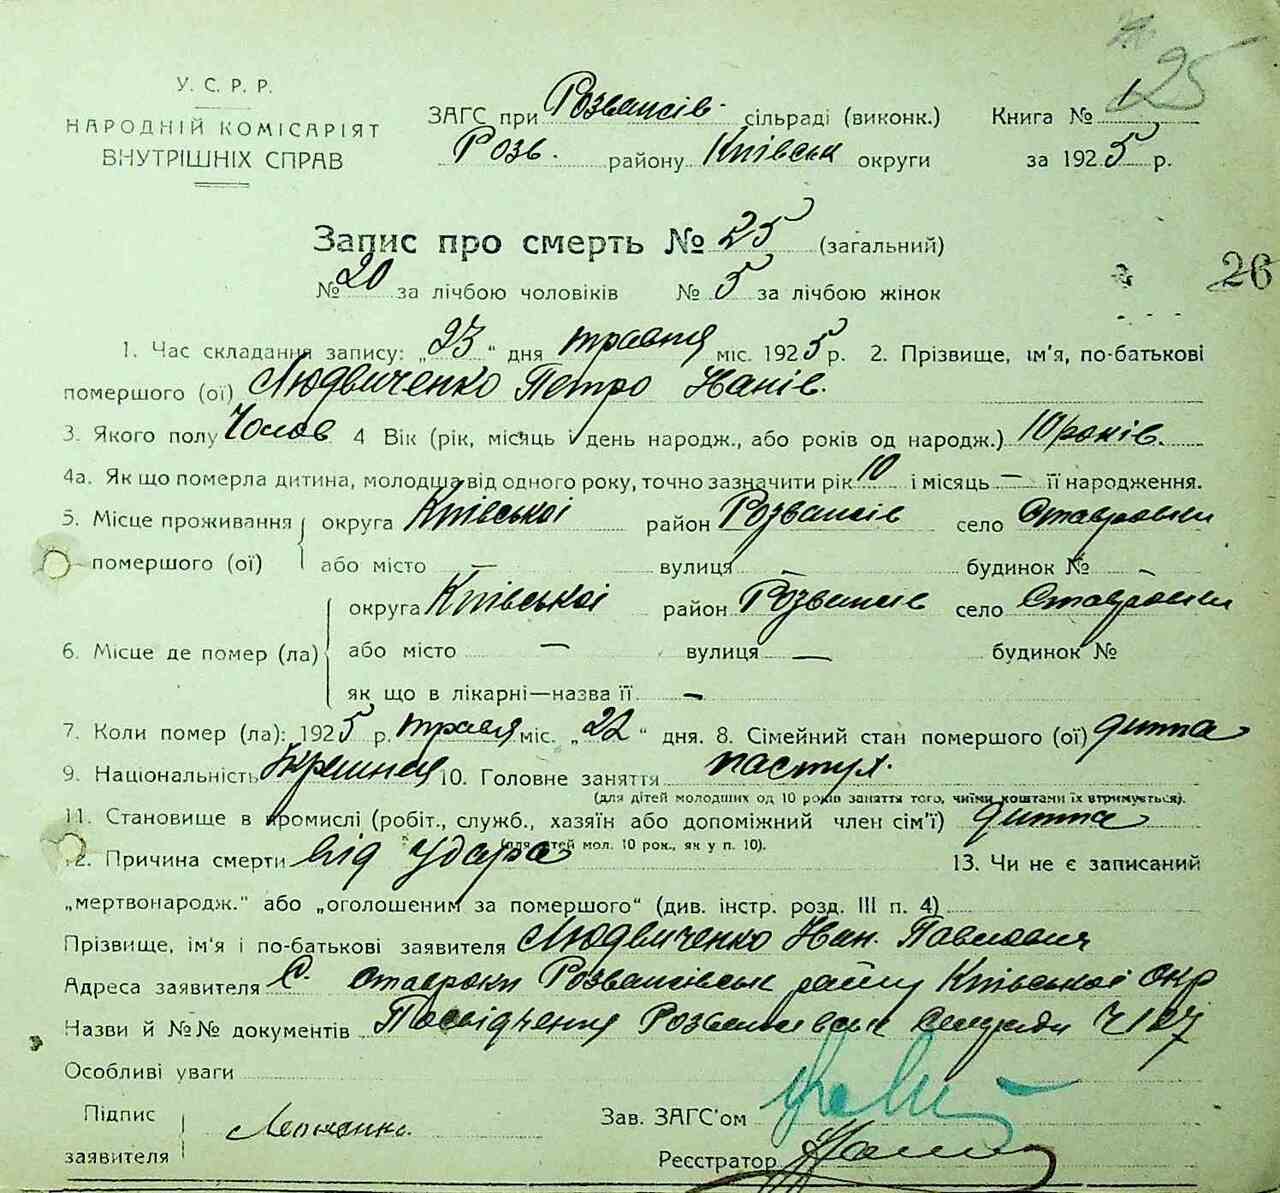 25
У. С. Р. Р.
НАРОДНІЙ КОМІСАРІЯТ
ВНУТРІШНІХ СПРАВ
ЗАГС при Розважів сільраді (виконк.) Книга № 1
Розв. району Київськ округи за 1925 р.
Запис про смерть № 25 (загальний)
26
№ 20 за лічбою чоловіків № 5 за лічбою жінок
1. Час складання запису: „23“ дня травня міс. 1925 р. 2. Прізвище, ім'я, по-батькові
помершого (ої) Людвиченко Петро Ів��нів.
3. Якого полу Чолов 4 Вік (рік, місяць і день народж., або років од народж.) 10 років.
4а. Як що померла дитина, молодша від одного року, точно зазначити рік 10 і місяць — її народження.
5. Місце проживання округа Київської район Розважів село Ставровки
помершого (ої) або місто — вулиця — будинок № -
округа Київської район Розважів село Ставровки
6. Місце де помер (ла) або місто — вулиця — будинок №
як що в лікарні—назва її —
7. Коли помер (ла): 1925 р. травня міс. „22“ дня. 8. Сімейний стан помершого (ої) дитина
9. Національність Українця 10. Головне заняття пастух.
(для дітей молодших од 10 років заняття того, чиїми коштами їх втримується).
11. Становище в промислі (робіт., служб., хазяїн або допоміжний член сім'ї) дитина
(для дітей мол. 10 рок., як у п. 10).
12. Причина смерти від удара 13. Чи не є записаний
„мертвонародж.“ або „оголошеним за помершого“ (див. інстр. розд. III п. 4)
Прізвище, ім'я і по-батькові заявителя Людвиченко Іван. Павлович
Адреса заявителя С. Ставровки Розважівськ району Київської окр
Назви й №№ документів Посвідчення Розважівськ Сельради Ч 127
Особливі уваги
Підпис
заявителя
Зав. ЗАГС'ом
Реєстратор